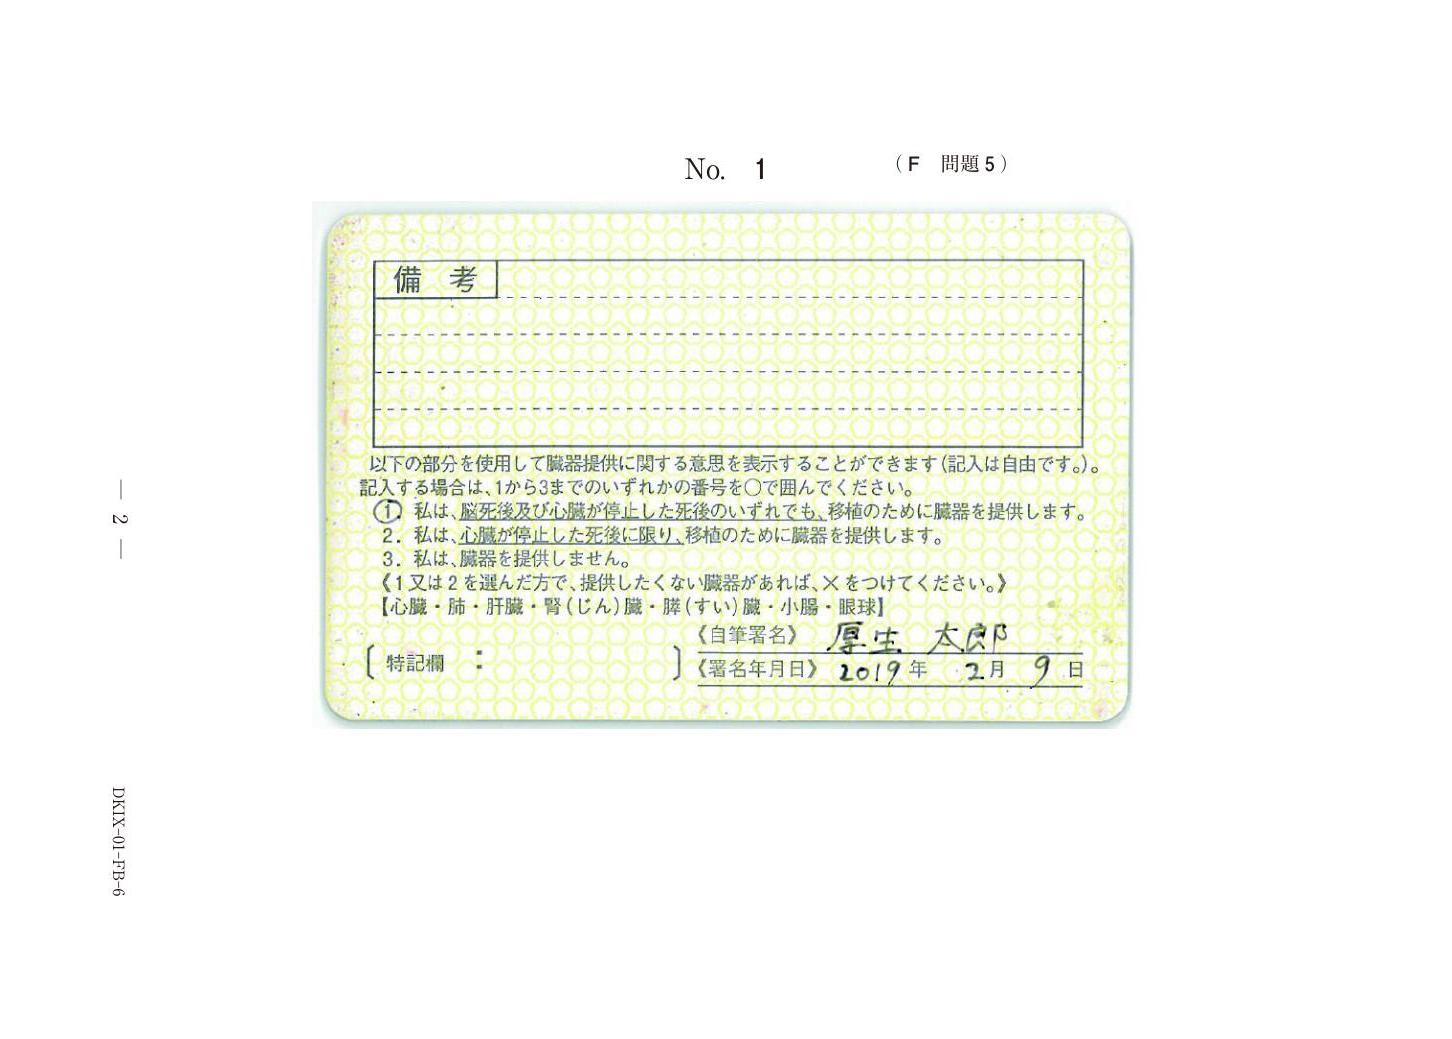 No. 1 （F 問題5）
備 考
以下の部分を使用して臓器提供に関する意思を表示することができます(記入は自由です。)。
記入する場合は､1から3までのいずれかの番号を○で囲んでください｡
1. 私は､脳死後及び心臓が停止した死後のいずれでも､移植のために臓器を提供します｡
2. 私は､心臓が停止した死後に限り､移植のために臓器を提供します｡
3. 私は､臓器を提供しません｡
《1又は2を選んだ方で､提供したくない臓器があれば､×をつけてください｡》
【心臓・肺・肝臓・腎(じん)臓・膵(すい)臓・小腸・眼球】
《自筆署名》 厚生 太郎
〔特記欄 : 〕
《署名年月日》 2019年 2月 9日
— 2 —
DKIX-01-FB-6